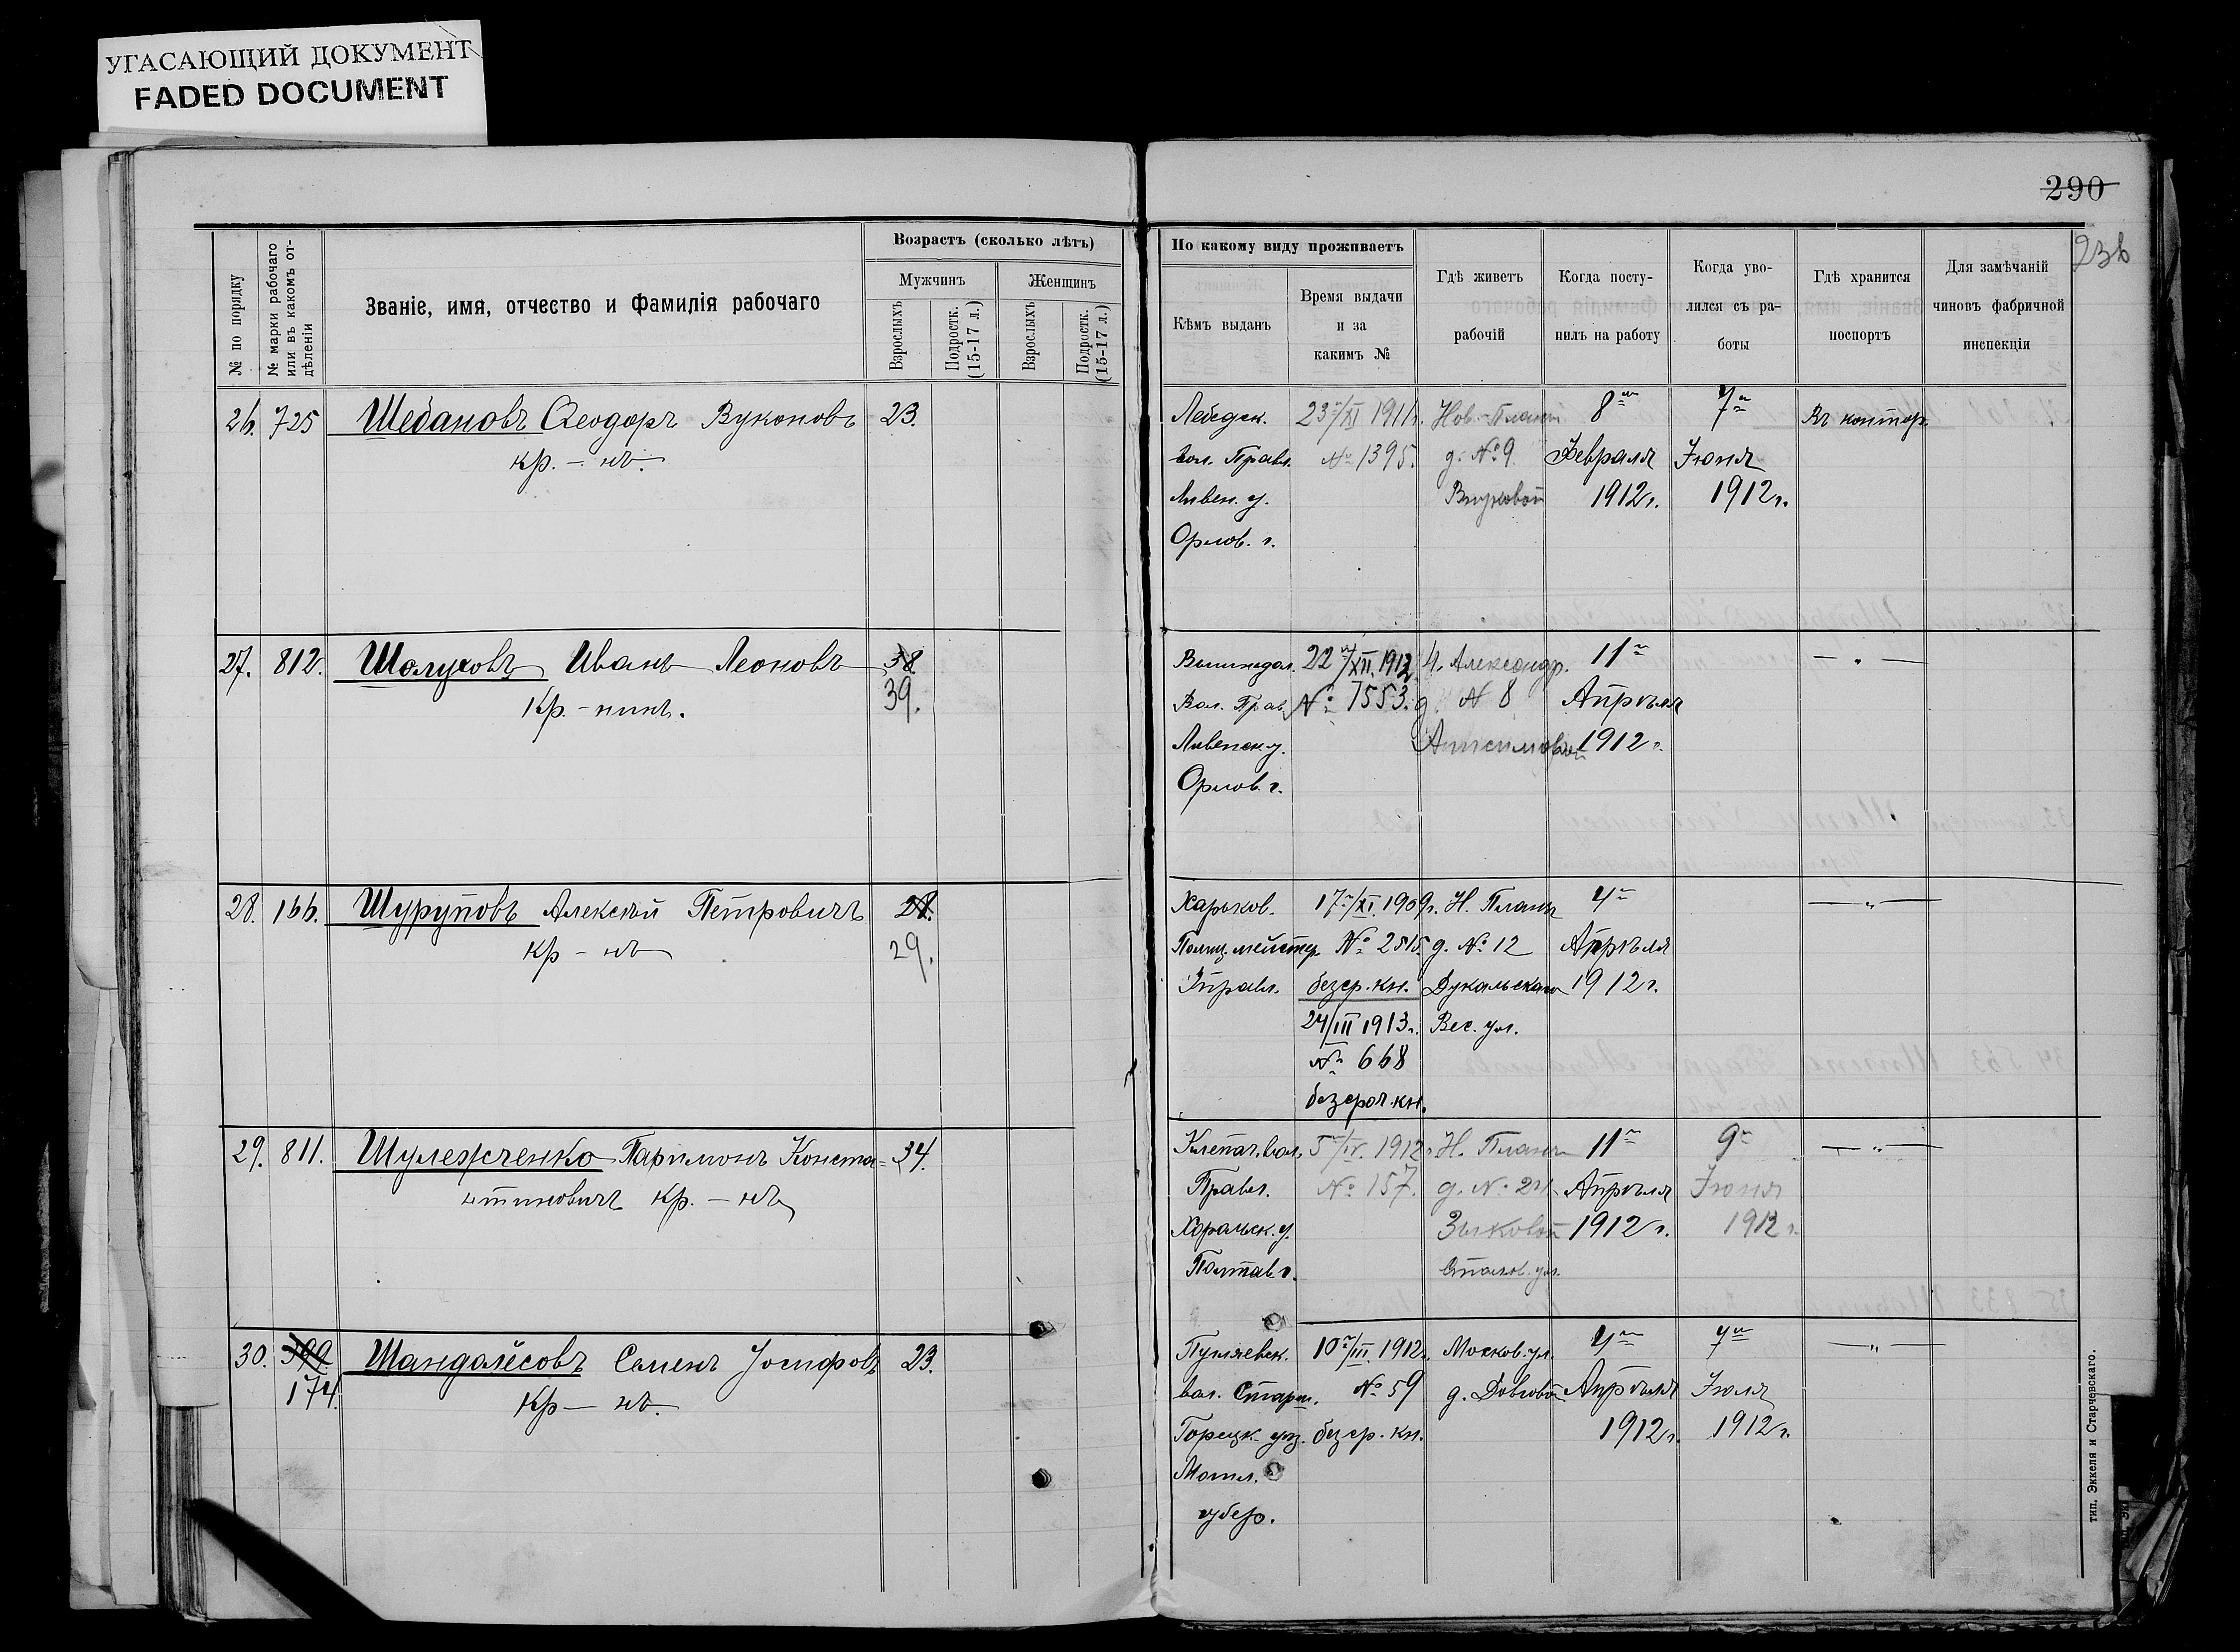 УГАСАЮЩИЙ ДОКУМЕНТ
FADED DOCUMENT
290
№ по порядку
№ марки рабочаго
или въ какомъ от-
дѣленіи
Званіе, имя, отчество и фамилія рабочаго
Возрастъ (сколько лѣтъ)
Мужчинъ
Женщинъ
Взрослыхъ
Подростк.
(15-17 л.)
Взрослыхъ
Подростк.
(15-17 л.)
По какому виду проживаетъ
Кѣмъ выданъ
Время выдачи
и за
какимъ №
Гдѣ живетъ
рабочій
Когда посту-
пилъ на работу
Когда уво-
лился съ ра-
боты
Гдѣ хранится
поспортъ
Для замѣчаній
чиновъ фабричной
инспекціи
26. 725 Шебановъ Ѳеодоръ 23.
кр. - нъ.
Лебедск.
вол. Правл.
Ливен. у.
Орлов. г.
23/XI 1911г.
№ 1395.
Нов.-Планъ
д. № 9
Внуковой
8го
Февраля
1912г.
7го
Іюня
1912г.
Въ контор.
27. 812. Шолуховъ Иванъ Леоновъ 38
39.
Кр. - нинъ.
Вол. Прав.
Ливенск. у.
Орлов. г.
22/XII. 1912
№ 7553.
Ч. Александр.
д. № 8
11го
Апрѣля
1912 г.
— „ —
28. 166. Шуруповъ Алексѣй Петровичъ 28.
29.
кр - нъ
Харьков.
Полиц. мейстер
Управл.
17/XI. 1909г.
№ 2515.
безср. кн.
24/III 1913г.
№ 668
безсроч. кн.
Н. Планъ
д. № 12
Дукальскаго
Вес. ул.
4го
Апрѣля
1912 г.
— „ —
29. 811. Шулежченко Паримонъ Конста- 34.
нтиновичъ кр. - нъ
Клепач. вол.
Правл.
Хорольск. у.
Полтав. г.
5/IV. 1912г.
№ 157.
Н. Планъ
д. № 24
Зыковой
11го
Апрѣля
1912 г.
9го
Іюня
1912 г.
— „ —
30. 399
174. Шандалесовъ Семенъ Іосифовъ 23.
Кр - нъ.
вол. Старш.
Горецк. уѣз.
Могил.
губер.
10/III. 1912г.
№ 59
безср. кн.
Москов. ул.
д. Довговой
4го
Апрѣля
1912г.
7го
Іюля
1912г.
— „ —
тип. Эккеля и Старчевскаго.